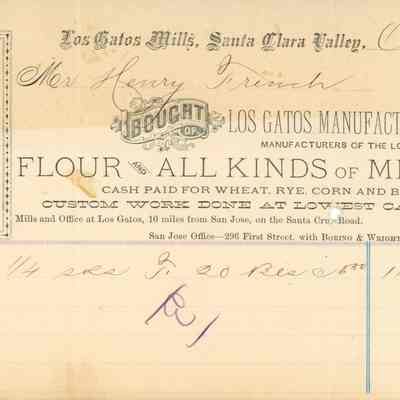 Los Gatos Mills, Santa Clara Valley,
Mr Henry French
BOUGHT OF LOS GATOS MANUFACT
MANUFACTURERS OF THE LO
FLOUR AND ALL KINDS OF MI
CASH PAID FOR WHEAT, RYE, CORN AND B
CUSTOM WORK DONE AT LOWEST CA
Mills and Office at Los Gatos, 10 miles from San Jose, on the Santa Cruz Road.
San Jose Office—296 First Street, with BORING & WRIGHT
1/4 sks F. 20 Bbls